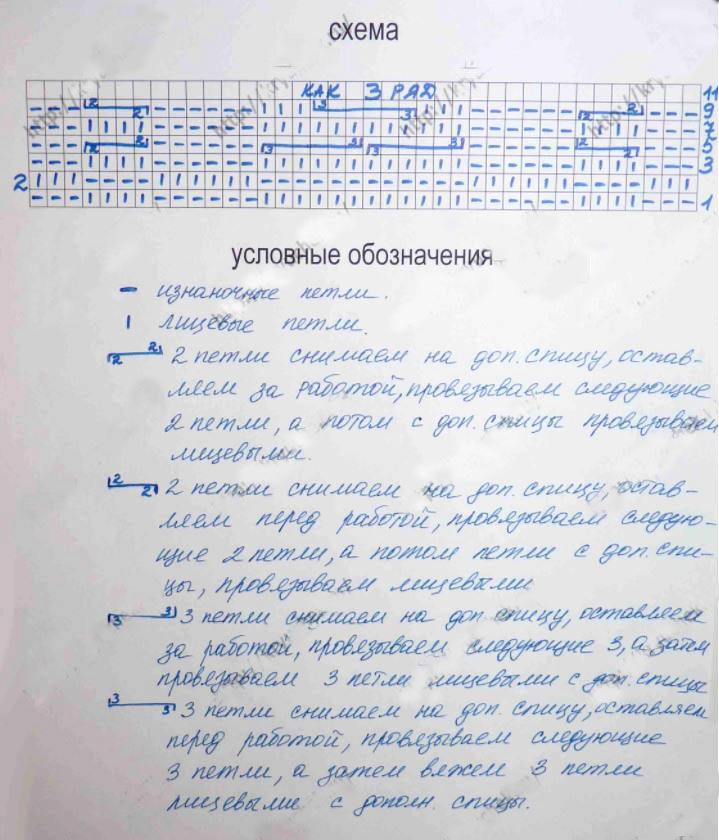 схема
КАК 3 РЯД 11
2 2 3 3 2 2 9
7
2 2 3 3 3 3 2 2 5
3
2
1
условные обозначения
– изнаночные петли.
| лицевые петли.
2 2 2 петли снимаем на доп. спицу, остав-
ляем за работой, провязываем следующие
2 петли, а потом с доп. спицы провязываем
лицевыми.
2 2 2 петли снимаем на доп. спицу, остав-
ляем перед работой, провязываем следую-
щие 2 петли, а потом петли с доп. спи-
цы, провязываем лицевыми
3 3 3 петли снимаем на доп спицу, оставляем
за работой, провязываем следующие 3, а затем
провязываем 3 петли лицевыми с доп. спицы
3 3 3 петли снимаем на доп. спицу, оставляем
перед работой, провязываем следующие
3 петли, а затем вяжем 3 петли
лицевыми с дополн. спицы.